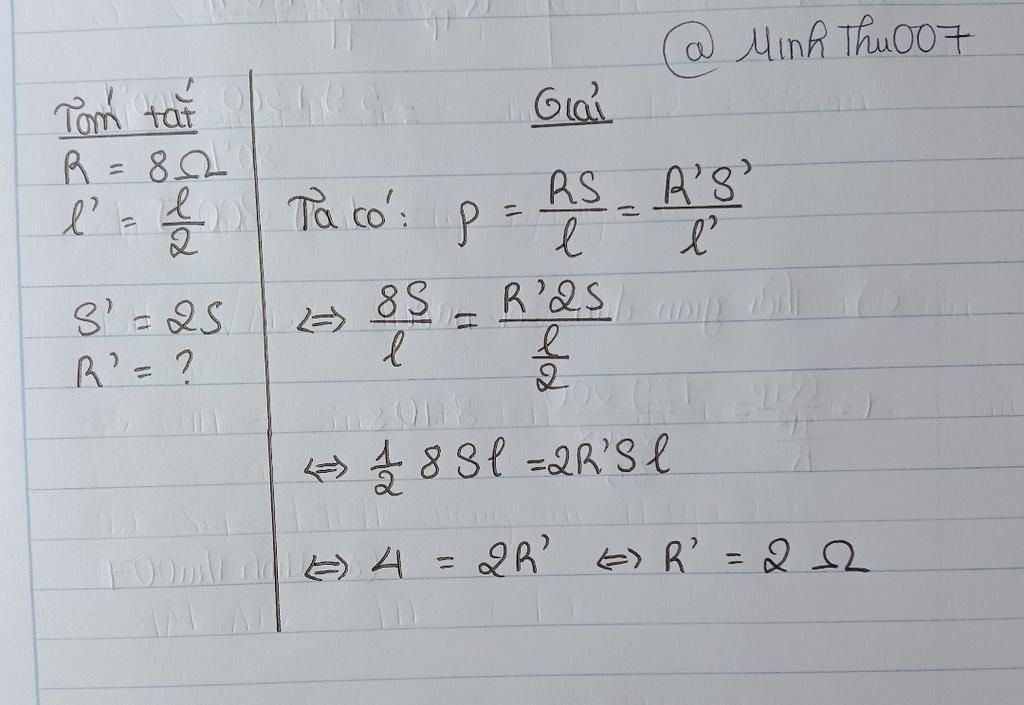 @ Minh Thu007
Tóm tắt
R = 8Ω
l' = l/2
S' = 2S
R' = ?
Giải
Ta có: ρ = RS/l = R'S'/l'
⇔ 8S/l = R'2S/(l/2)
⇔ 1/2 8Sl = 2R'Sl
⇔ 4 = 2R' ⇔ R' = 2 Ω